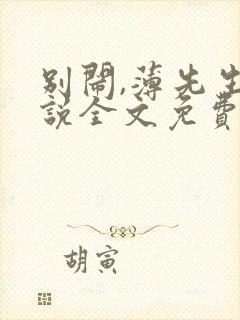 别鬧,薄先生
説全文免費
胡寅